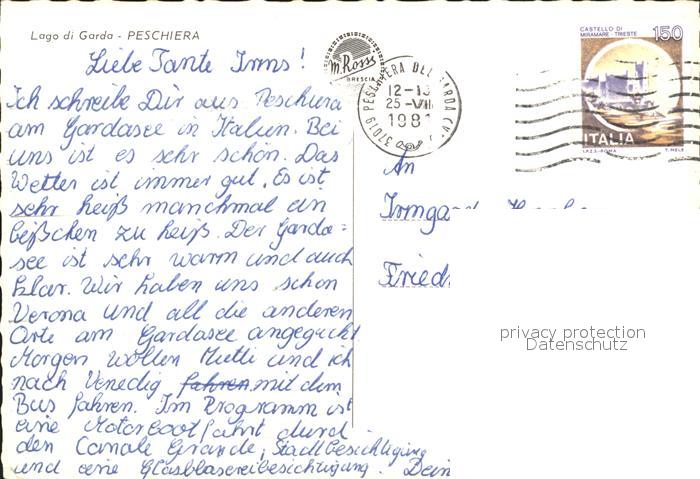 Lago di Garda - PESCHIERA
Liebe Tante Irms!
Ich schreibe Dir aus Peschiera
am Gardasee in Italien. Bei
uns ist es sehr schön. Das
Wetter ist immer gut. Es ist
sehr heiß manchmal ein
bißchen zu heiß. Der Garda=
see ist sehr warm und auch
klar. Wir haben uns schon
Verona und all die anderen
Orte am Gardasee angeguckt
Morgen wollen Mutti und ich
nach Venedig fahren mit dem
Bus fahren. Im Programm ist
eine Motorbootfahrt durch
den Canale Grande, Stadtbesichtigung
und eine Glasbläsereibesichtigung. Dein
m. Rossi
BRESCIA
37019 PESCHIERA DEL GARDA
12-13
25-VIII
1981
CASTELLO DI
MIRAMARE - TRIESTE
150
ITALIA
I.P.Z.S. - ROMA
T. MELE
An
Irmga
Fried
privacy protection
Datenschutz